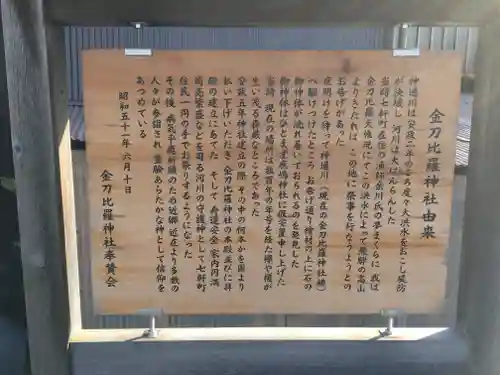 金刀比羅神社由来
神通川は安政二年のころ度々大洪水をおこし堤防
が決壊し 河川は大はんらんした
当時七軒町在住の
川氏の夢まくらに 我は
金刀比羅大権現にてこの洪水によって飛騨の高山
よりきたれば この地に祭事を行なうようとの
お告げがあった
夜明けを待って神通川(現在の金刀比羅神社横)
へ駆けつけたところ お告げ通り 檜材の上に石の
御神体が流れ着いておられるのを発見した
御神体はひとまず厳島神社に仮安置申し上げた
当時 現在の場所は数百年の年号を経た欅や榎が
生い茂る森林なところであった
安政五年神社建立の際 その中の何本かを国より
払い下げいただき 金刀比羅神社の本殿並びに拝
殿の建立にあてた そして 寿運安全 家内円満
商売繁盛などを司る河川の守護神として七軒町
住民一同の手でお祭りするようになった
その後 病気平癒祈願のため近郷 近在より多数の
人々が参詣され 霊験あらたかな神として信仰を
あつめている
昭和五十一年六月十日
金刀比羅神社奉賛会